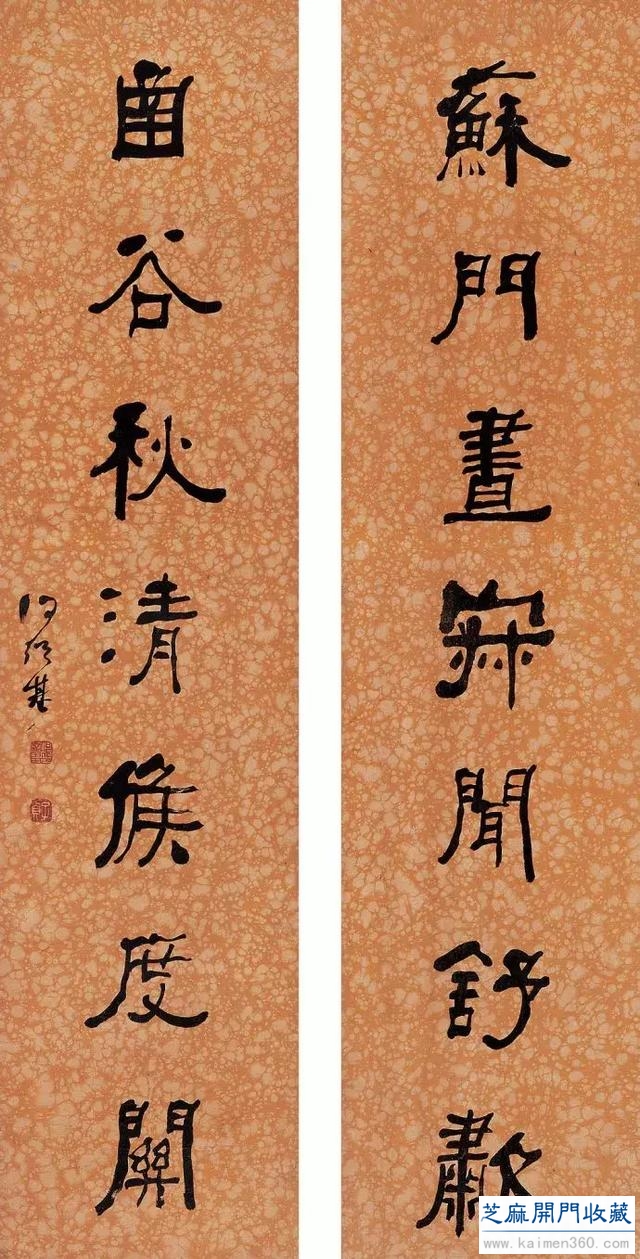 蘇門晝寂聞舒歗
函谷秋清候度關
何紹基
芝麻開門收藏
www.kaimen360.com